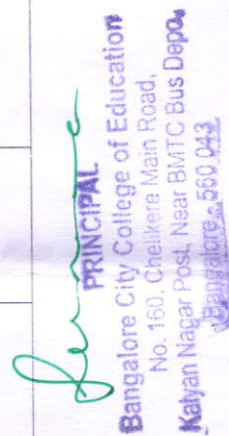 PRINCIPAL
Bangalore City College of Education
No. 160, Chelikere Main Road,
Kalyan Nagar Post, Near BMTC Bus Depo,
Bangalore - 560 043